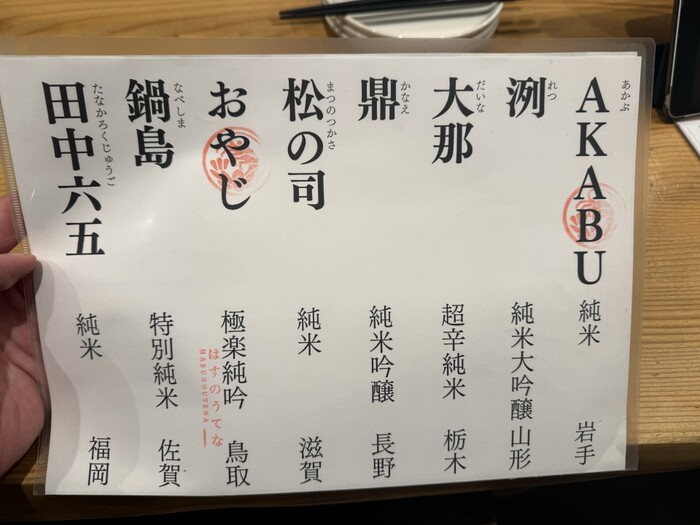 あかぶ
AKABU 純米 岩手
れつ
洌 純米大吟醸 山形
だいな
大那 超辛純米 栃木
かなえ
鼎 純米吟醸 長野
まつのつかさ
松の司 純米 滋賀
おやじ 極楽純吟 鳥取
はすのうてな
HASUNOUTENA
なべしま
鍋島 特別純米 佐賀
たなかろくじゅうご
田中六五 純米 福岡